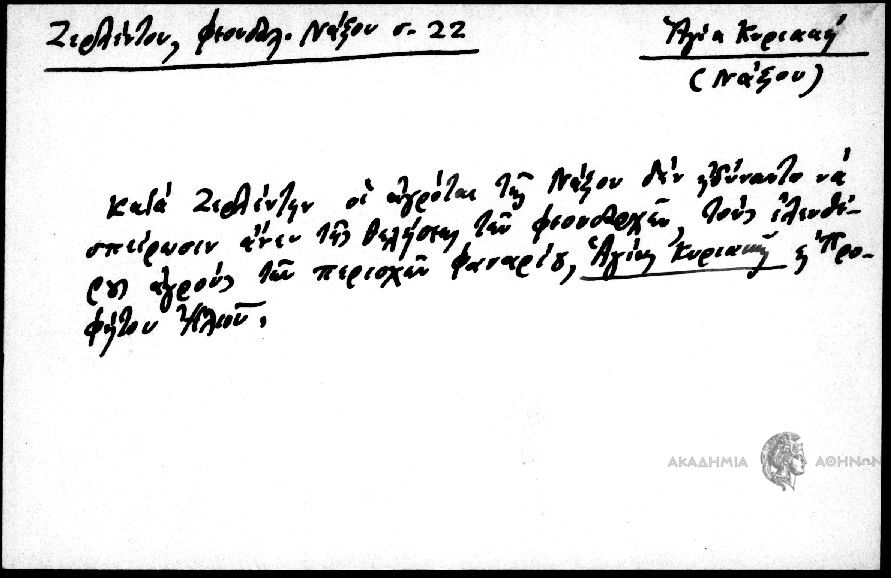 Ζερλέντου, φεουδαλ. Νάξου σ. 22
Ἁγία Κυριακή
(Νάξου)
Κατά Ζερλέντην οἱ ἀγρόται τῆς Νάξου δέν ἠδύναντο νά
σπείρωσιν ἄνευ τῆς θελήσεως τῶν φεουδαρχῶν, τούς ἐλευθέ-
ρους ἀγρούς τῶν περιοχῶν Φαναρίου, Ἁγίας Κυριακῆς κ Προ-
φήτου Ἠλιοῦ.
ΑΚΑΔΗΜΙΑ ΑΘΗΝΩΝ